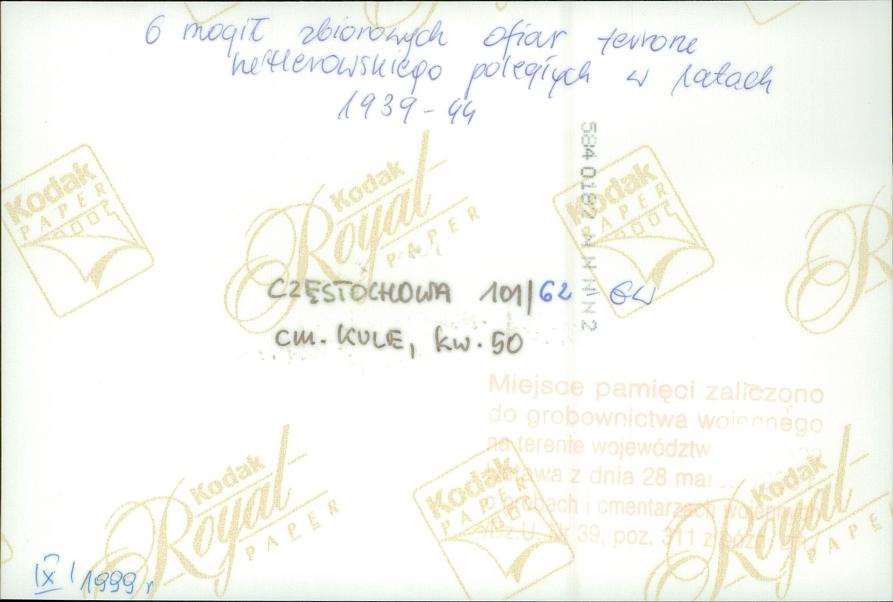 6 mogił zbiorowych ofiar terroru
hitlerowskiego poległych w latach
1939-44
CZĘSTOCHOWA 101/62-GW
CM. KULE, kw. 50
584 0182 N N N N 2
Miejsce pamięci zaliczono
do grobownictwa wojennego
na terenie województw
ustawa z dnia 28 mar
o grobach i cmentarzach wojennych
Dz.U. Nr 39, poz. 311 z
IX 1999 r
Kodak
PAPER
Kodak
Royal
PAPER
Kodak
PAPER
Kodak
Royal
PAPER
Kodak
PAPER
Kodak
Royal
PAPER